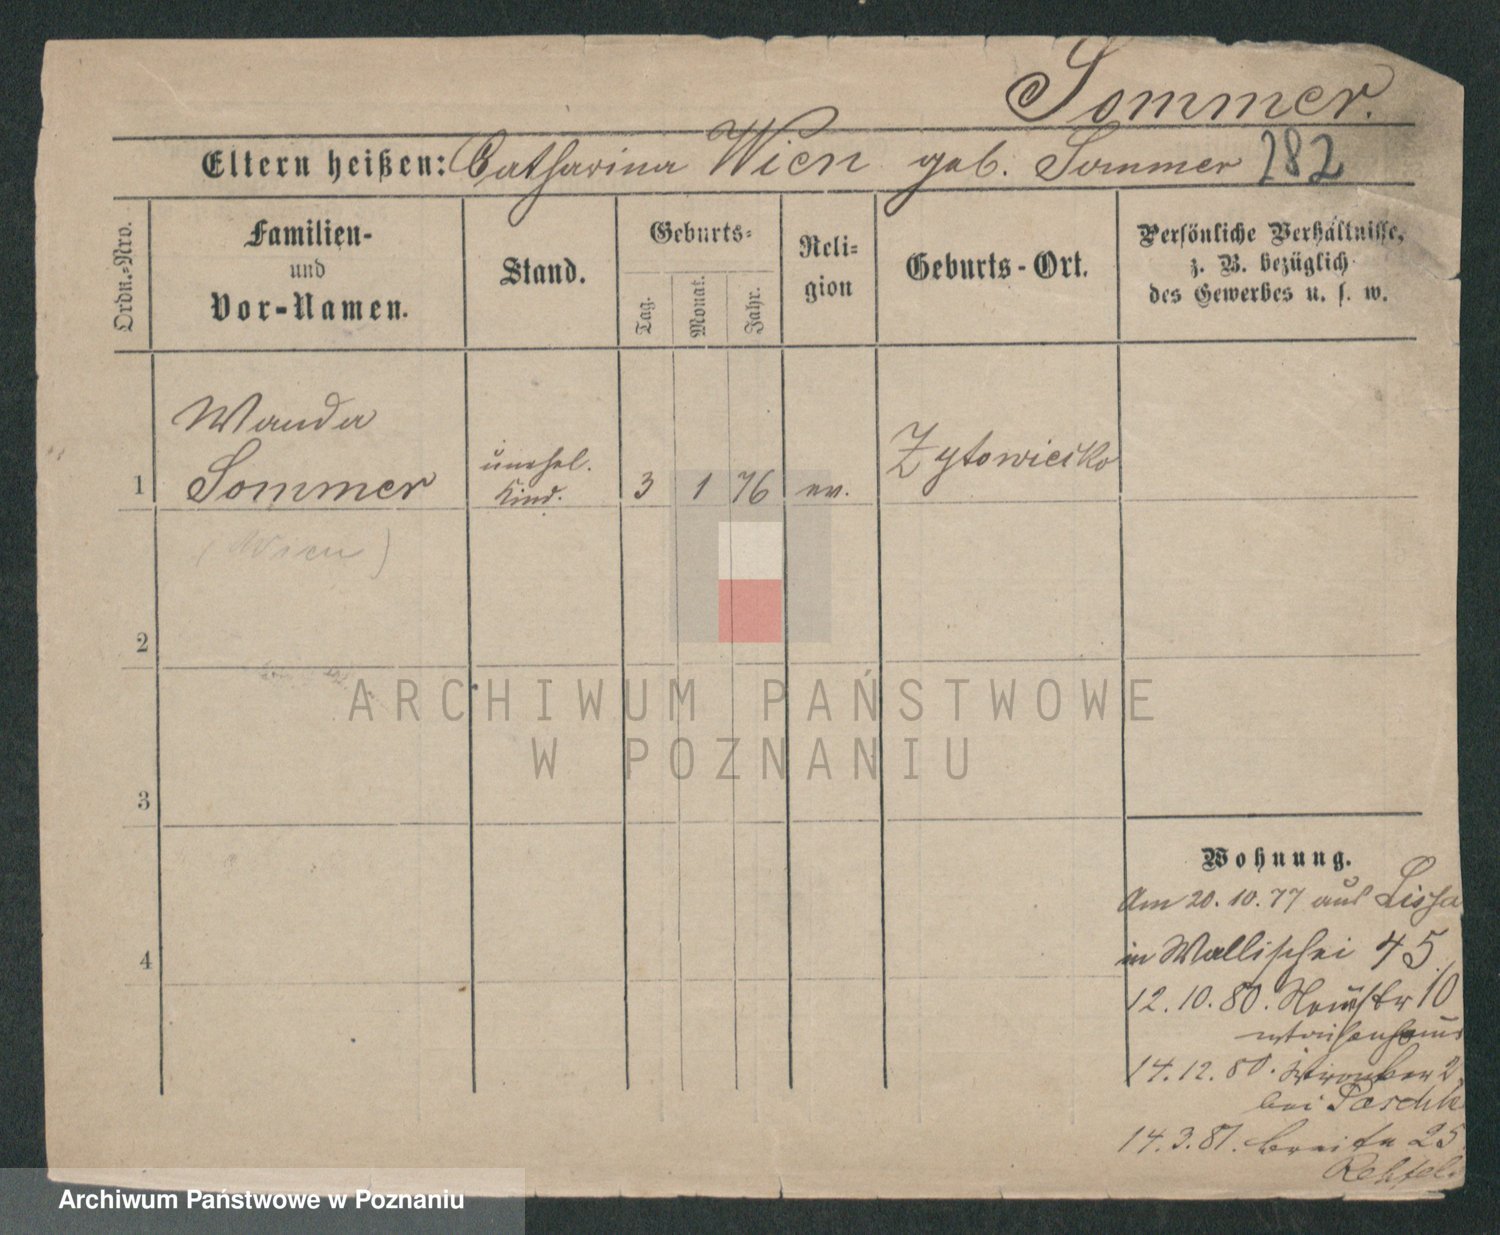 Sommer.
Eltern heißen: Catharina Wien geb. Sommer 282
Ordn.-Nro.
Familien-
und
Vor-Namen.
Stand.
Geburts-
Tag.
Monat.
Jahr.
Reli-
gion
Geburts-Ort.
Persönliche Verhältnisse,
z. B. bezüglich
des Gewerbes u. s. w.
Wanda
1 Sommer
unehel.
Kind.
3 1 76 ev.
Zytowiecko
(Wien)
2
3
4
Wohnung.
Am 20.10.77 aus Lissa
in Wallischei 45.
12.10.80. Neustr 10
Waisenhaus
14.12.80. 2
bei Paschk
14.3.81. Breite 25
Rehfeld
ARCHIWUM PAŃSTWOWE
W POZNANIU
Archiwum Państwowe w Poznaniu